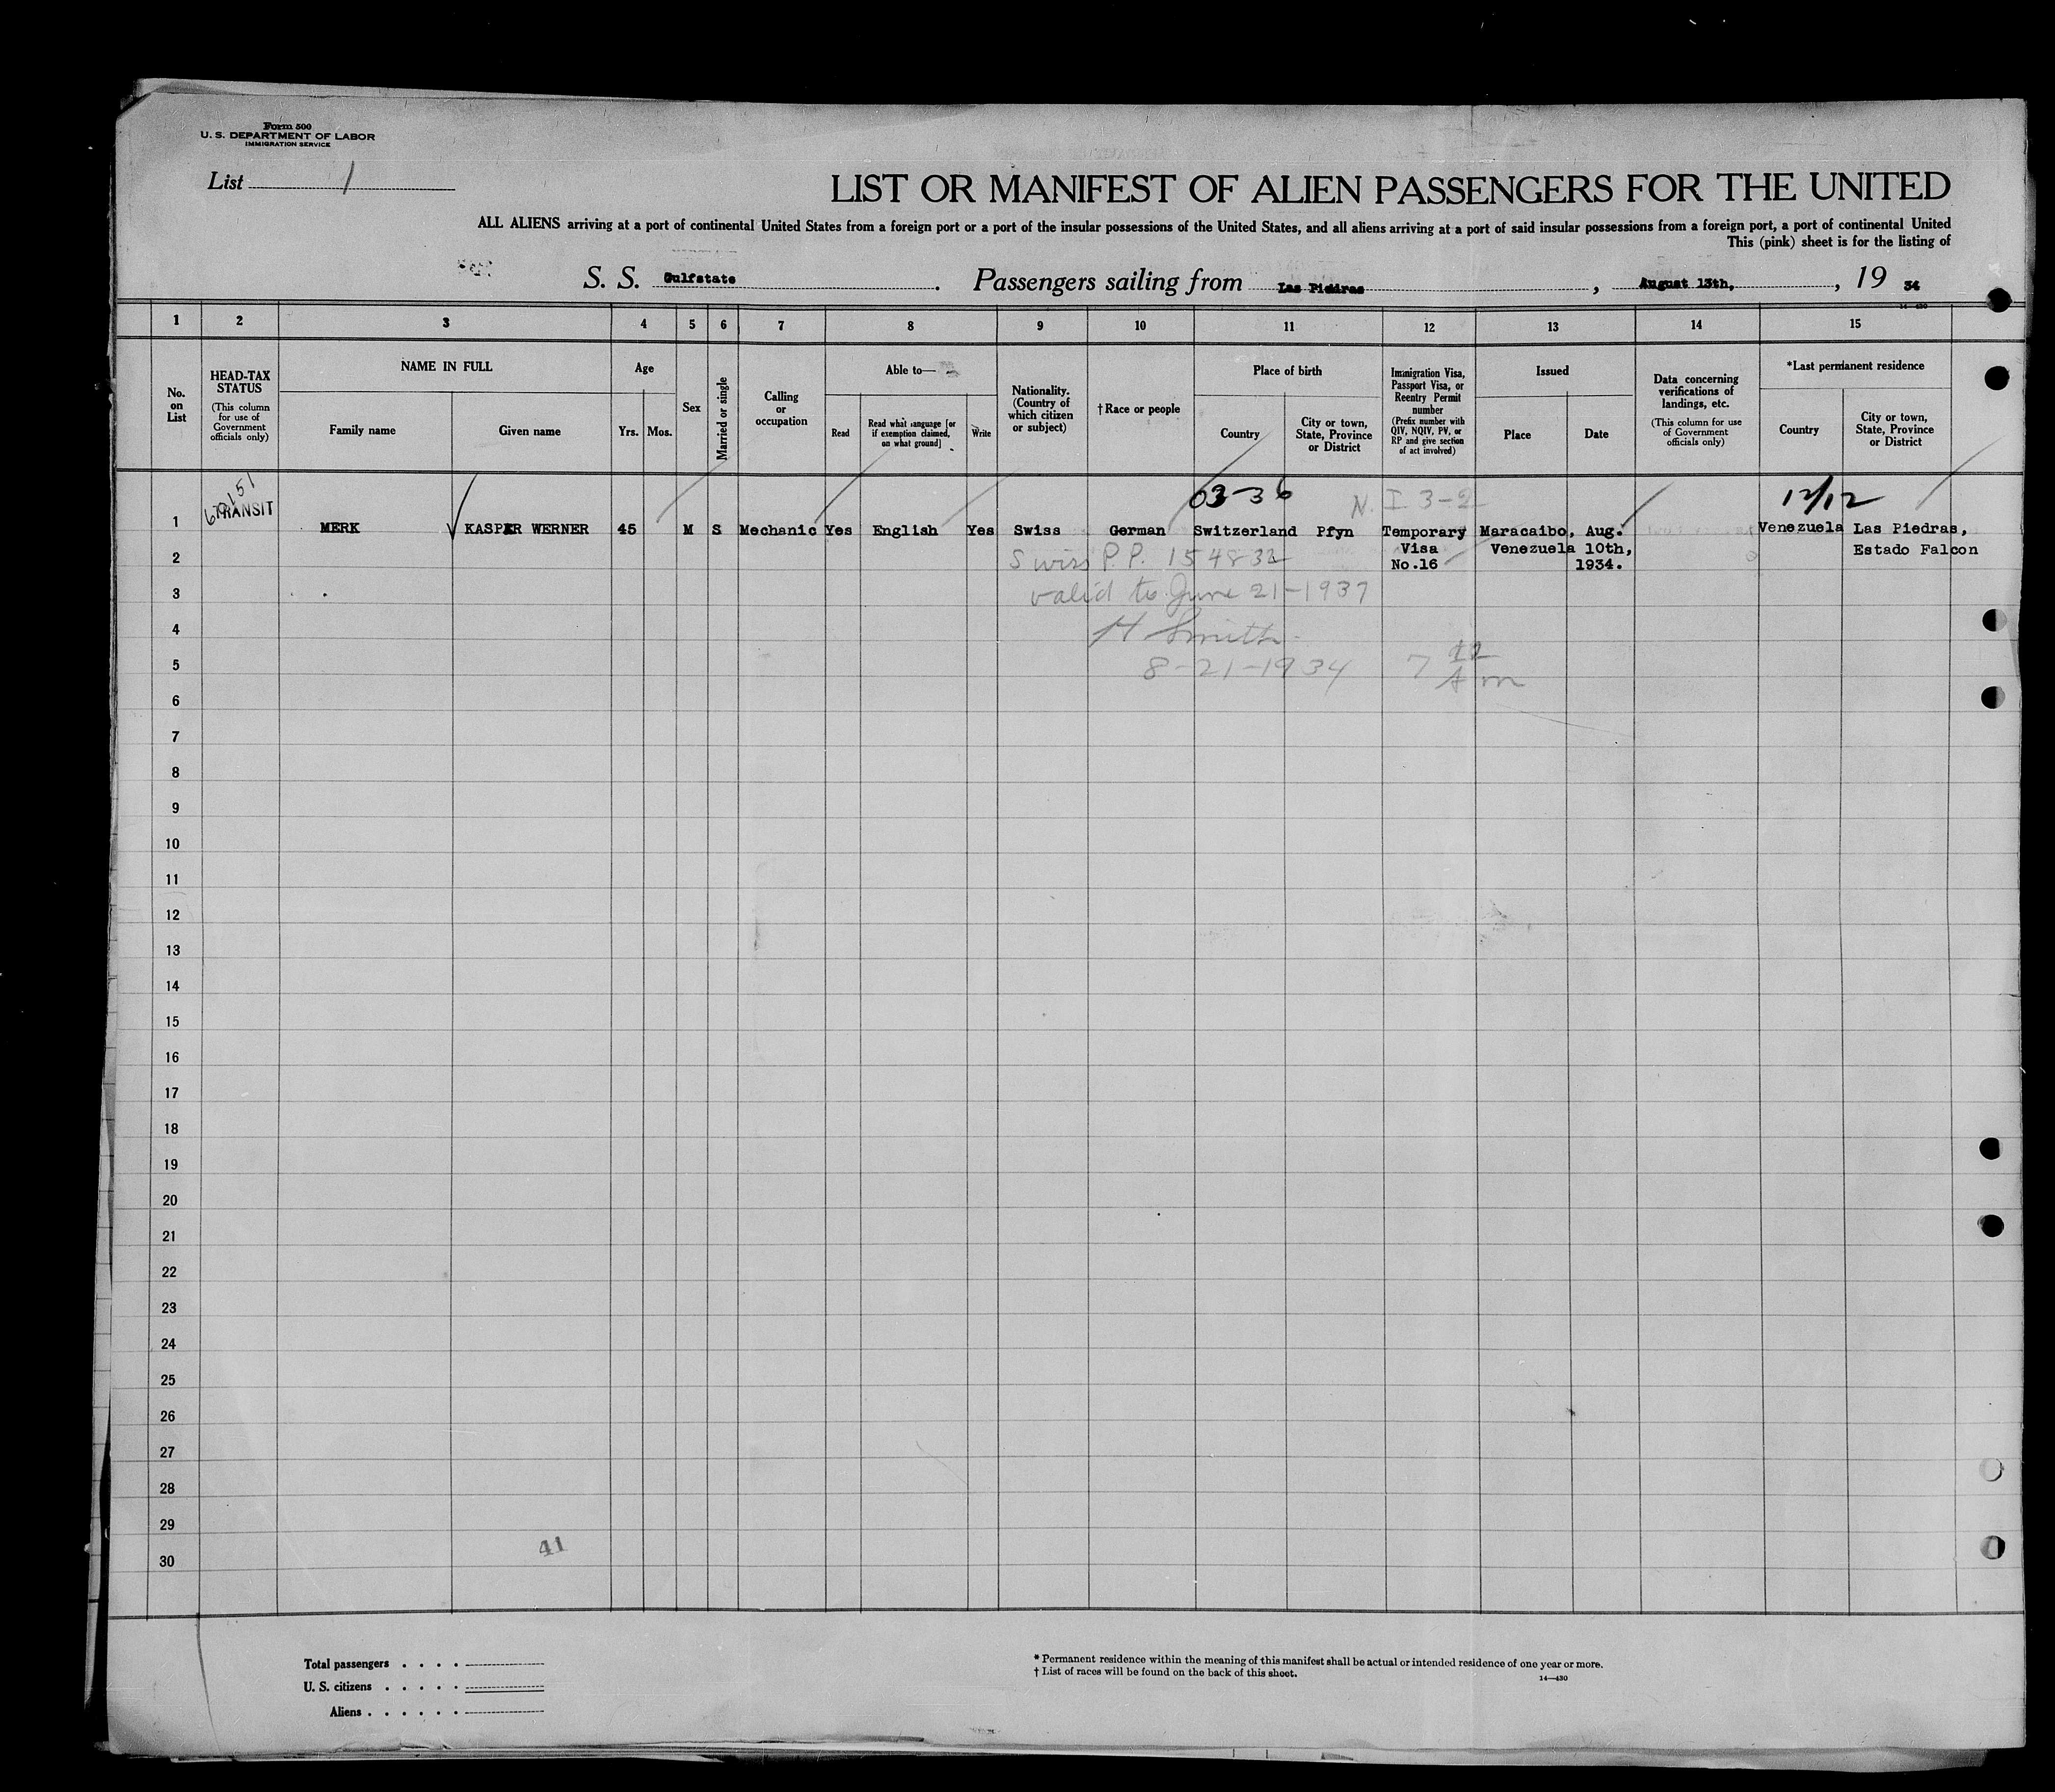 Form 500
U. S. DEPARTMENT OF LABOR
IMMIGRATION SERVICE
List 1
LIST OR MANIFEST OF ALIEN PASSENGERS FOR THE UNITED
ALL ALIENS arriving at a port of continental United States from a foreign port or a port of the insular possessions of the United States, and all aliens arriving at a port of said insular possessions from a foreign port, a port of continental United
This (pink) sheet is for the listing of
S. S. Gulfstate. Passengers sailing from Las Piedras, August 13th, 19 34
14—430
1 2 3 4 5 6 7 8 9 10 11 12 13 14 15
No. on List
HEAD-TAX STATUS
(This column for use of Government officials only)
NAME IN FULL
Family name
Given name
Age
Yrs. Mos.
Sex
Married or single
Calling or occupation
Able to—
Read
Read what language [or if exemption claimed, on what ground]
Write
Nationality. (Country of which citizen or subject)
†Race or people
Place of birth
Country
City or town, State, Province or District
Immigration Visa, Passport Visa, or Reentry Permit number
(Prefix number with QIV, NQIV, PV, or RP and give section of act involved)
Issued
Place
Date
Data concerning verifications of landings, etc.
(This column for use of Government officials only)
*Last permanent residence
Country
City or town, State, Province or District
03-36 N. I 3-2 12/12
1 TRANSIT MERK KASPAR WERNER 45 M S Mechanic Yes English Yes Swiss German Switzerland Pfyn Temporary Maracaibo, Aug. Venezuela Las Piedras,
2 Visa Venezuela 10th, Estado Falcon
No.16 1934.
Swiss P.P. 154832
3 valid to June 21-1937
4 H Smith
5 8-21-1934 7 12 Am
6
7
8
9
10
11
12
13
14
15
16
17
18
19
20
21
22
23
24
25
26
27
28
29
30
41
Total passengers . . . .
U. S. citizens . . . . .
Aliens . . . . . .
* Permanent residence within the meaning of this manifest shall be actual or intended residence of one year or more.
† List of races will be found on the back of this sheet.
14—430